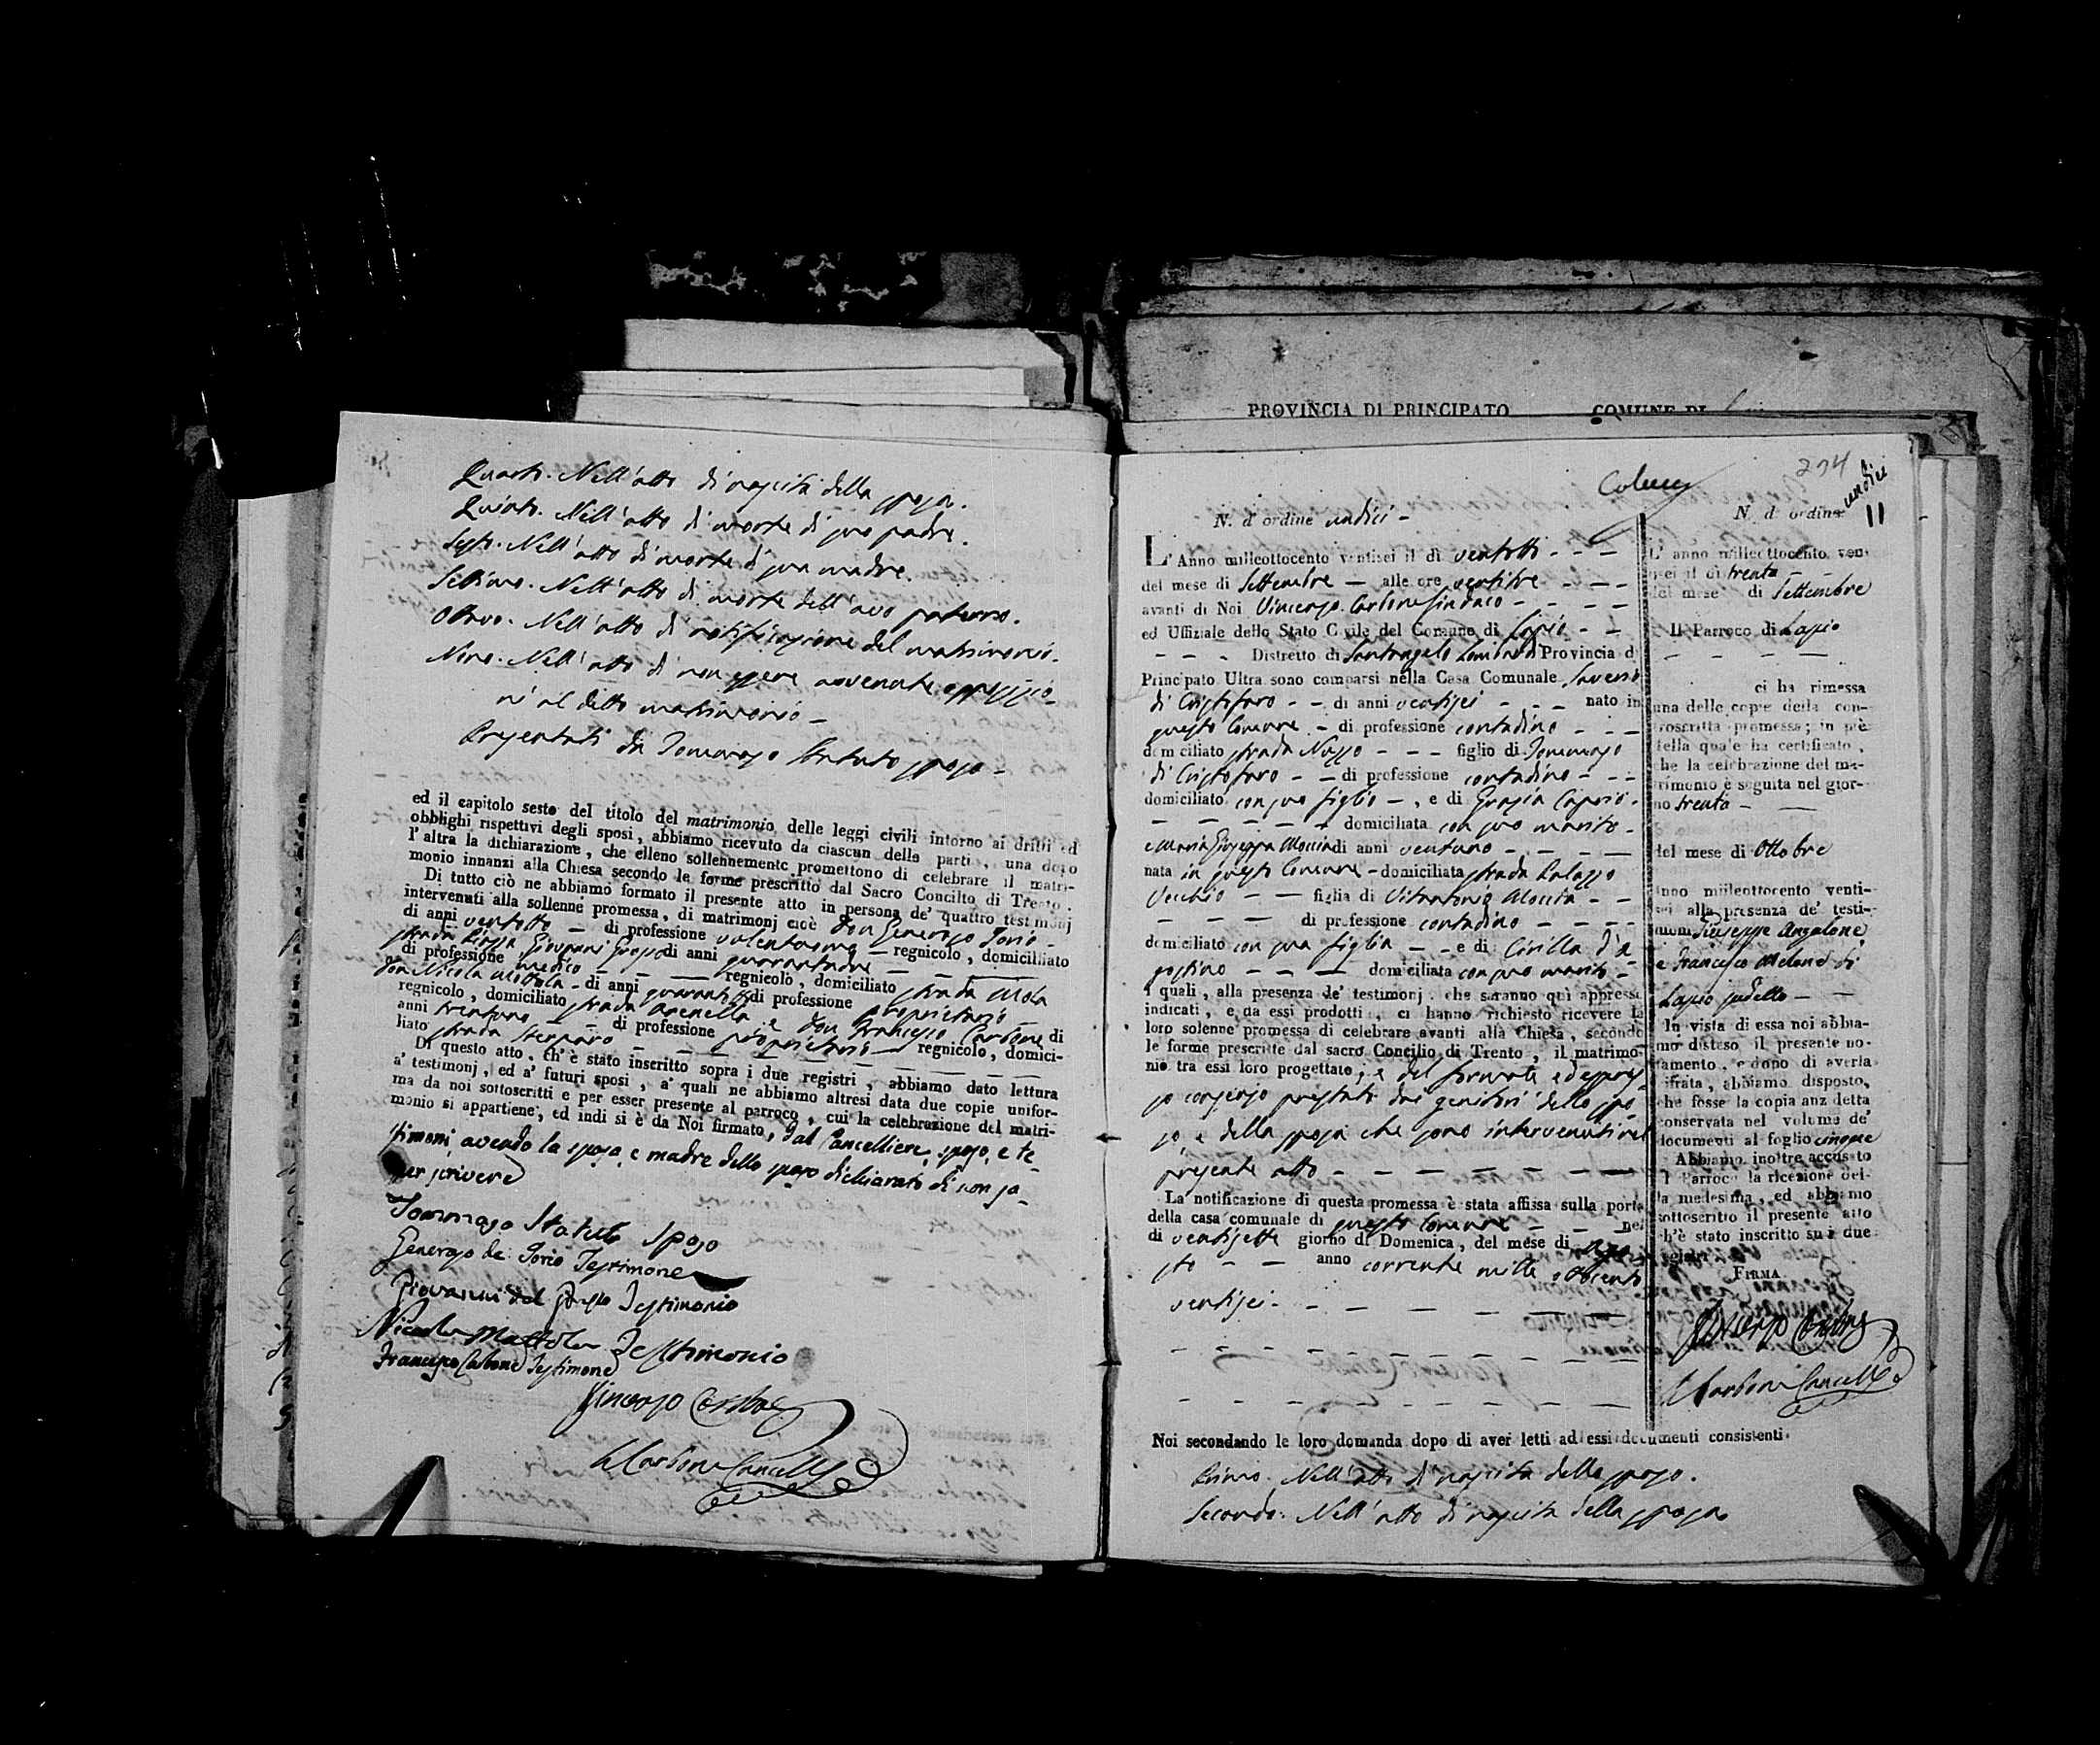 PROVINCIA DI PRINCIPATO COMUNE DI
Quarto. Nell'atto di nascita della sposa.
Quinto. Nell'atto di morte di suo padre.
Sesto. Nell'atto di morte di sua madre.
Settimo. Nell'atto di morte dell'avo paterno.
Ottavo. Nell'atto di notificazione del matrimonio.
Nono. Nell'atto di non essere avvenute opposizio-
ni al detto matrimonio -
Presentati da Tommaso Statuto sposo -
ed il capitolo sesto del titolo del matrimonio delle leggi civili intorno ai dritti ed
obblighi rispettivi degli sposi, abbiamo ricevuto da ciascun delle parti, una dopo
l'altra la dichiarazione, che elleno sollennemente promettono di celebrare il matri-
monio innanzi alla Chiesa secondo le forme prescritto dal Sacro Concilio di Trento.
Di tutto ciò ne abbiamo formato il presente atto in persona de' quattro testimonj
intervenuti alla sollenne promessa, di matrimonj cioè Don Generoso Iorio -
di anni ventotto - di professione - regnicolo, domiciliato
strada Piazza Giovanni Grosso di anni quarantadue
di professione medico - regnicolo, domiciliato strada Mola
Don Nicola Mottola - di anni di professione proprietario
regnicolo, domiciliato strada e Don Francesco Carbone di
anni trentuno - di professione proprietario - regnicolo, domici-
liato strada
Di questo atto, ch'è stato inscritto sopra i due registri, abbiamo dato lettura
a' testimonj, ed a' futuri sposi, a' quali ne abbiamo altresi data due copie unifor-
ma da noi sottoscritti e per esser presente al parroco, cui la celebrazione del matri-
monio si appartiene, ed indi si è da Noi firmato, dal Cancelliere, sposo, e te-
stimoni, avendo la sposa, e madre dello sposo dichiarato di non sa-
per scrivere
Tommaso Statuto Sposo
Generoso de Iorio Testimone
Giovanni del Grosso Testimonio
Nicola Mottola Testimonio
Francesco Carbone Testimone
Vincenzo Carbone
Carbone Cancell
234
N. d'ordine undici -
L'Anno milleottocento ventisei il dì ventotto - - -
del mese di Settembre - alle ore ventitre - - -
avanti di Noi Vincenzo Carbone Sindaco - - - -
ed Uffiziale dello Stato Civile del Comune di Lapio - -
- - - Distretto di Santangelo Lombardi Provincia di
Principato Ultra sono comparsi nella Casa Comunale Saverio
di Cristofaro - - di anni ventisei - - - nato in
questo Comune - di professione contadino - - -
domiciliato strada Nuzzo - - - figlio di Tommaso
di Cristofaro - - di professione contadino - - -
domiciliato con suo figlio - , e di Grazia Caprio -
- - - - - domiciliata con suo marito -
e Maria Giuseppa Moccia di anni ventuno - - - -
nata in questo Comune - domiciliata strada Palazzo
Vecchio - - figlia di Vitantonio Moccia - -
- - - di professione contadino - - - -
domiciliato con sua figlia - - e di Cirilla d'A
gostino - - - domiciliata con suo marito -
i quali, alla presenza de' testimonj, che saranno qui appresso
indicati, e da essi prodotti, ci hanno richiesto ricevere la
loro solenne promessa di celebrare avanti alla Chiesa, secondo
le forme prescritte dal sacro Concilio di Trento, il matrimo-
nio tra essi loro progettato, e del formale ed espres-
so consenso prestato dai genitori dello spo
so, e della sposa che sono intervenuti nel
presente atto - - - - - - - -
La notificazione di questa promessa è stata affissa sulla porta
della casa comunale di questo Comune - - nel
di ventisette giorno di Domenica, del mese di Ago
sto - - anno corrente mille ottocento
ventisei - - - - - - -
Noi secondando le loro domanda dopo di aver letti ad essi documenti consistenti.
Primo. Nell'atto di nascita dello sposo.
Secondo. Nell'atto di nascita della sposa
N. d'ordine undici
11
L'anno milleottocento ven-
sei il di trenta -
del mese di Settembre
Il Parroco di Lapio
- - - -
ci ha rimessa
una delle copie della con-
troscritta promessa; in piè
della quale ha certificato,
che la celebrazione del ma-
trimonio è seguita nel gior-
no trenta - -
del mese di Ottobre
anno milleottocento venti-
sei alla presenza de' testi-
moni Giuseppe Anzalone
e Francesco Meland di
Lapio sudetto - -
In vista di essa noi abbia-
mo disteso il presente no-
tamento, e dopo di averla
cifrata, abbiamo disposto,
che fosse la copia anz detta
conservata nel volume de'
documenti al foglio cinque
Abbiamo inoltre accusato
al Parroco la ricezione del-
la medesima, ed abbiamo
sottoscritto il presente atto
ch'è stato inscritto sui due
registri
FIRMA
Vincenzo Carbone
Carbone Cancell